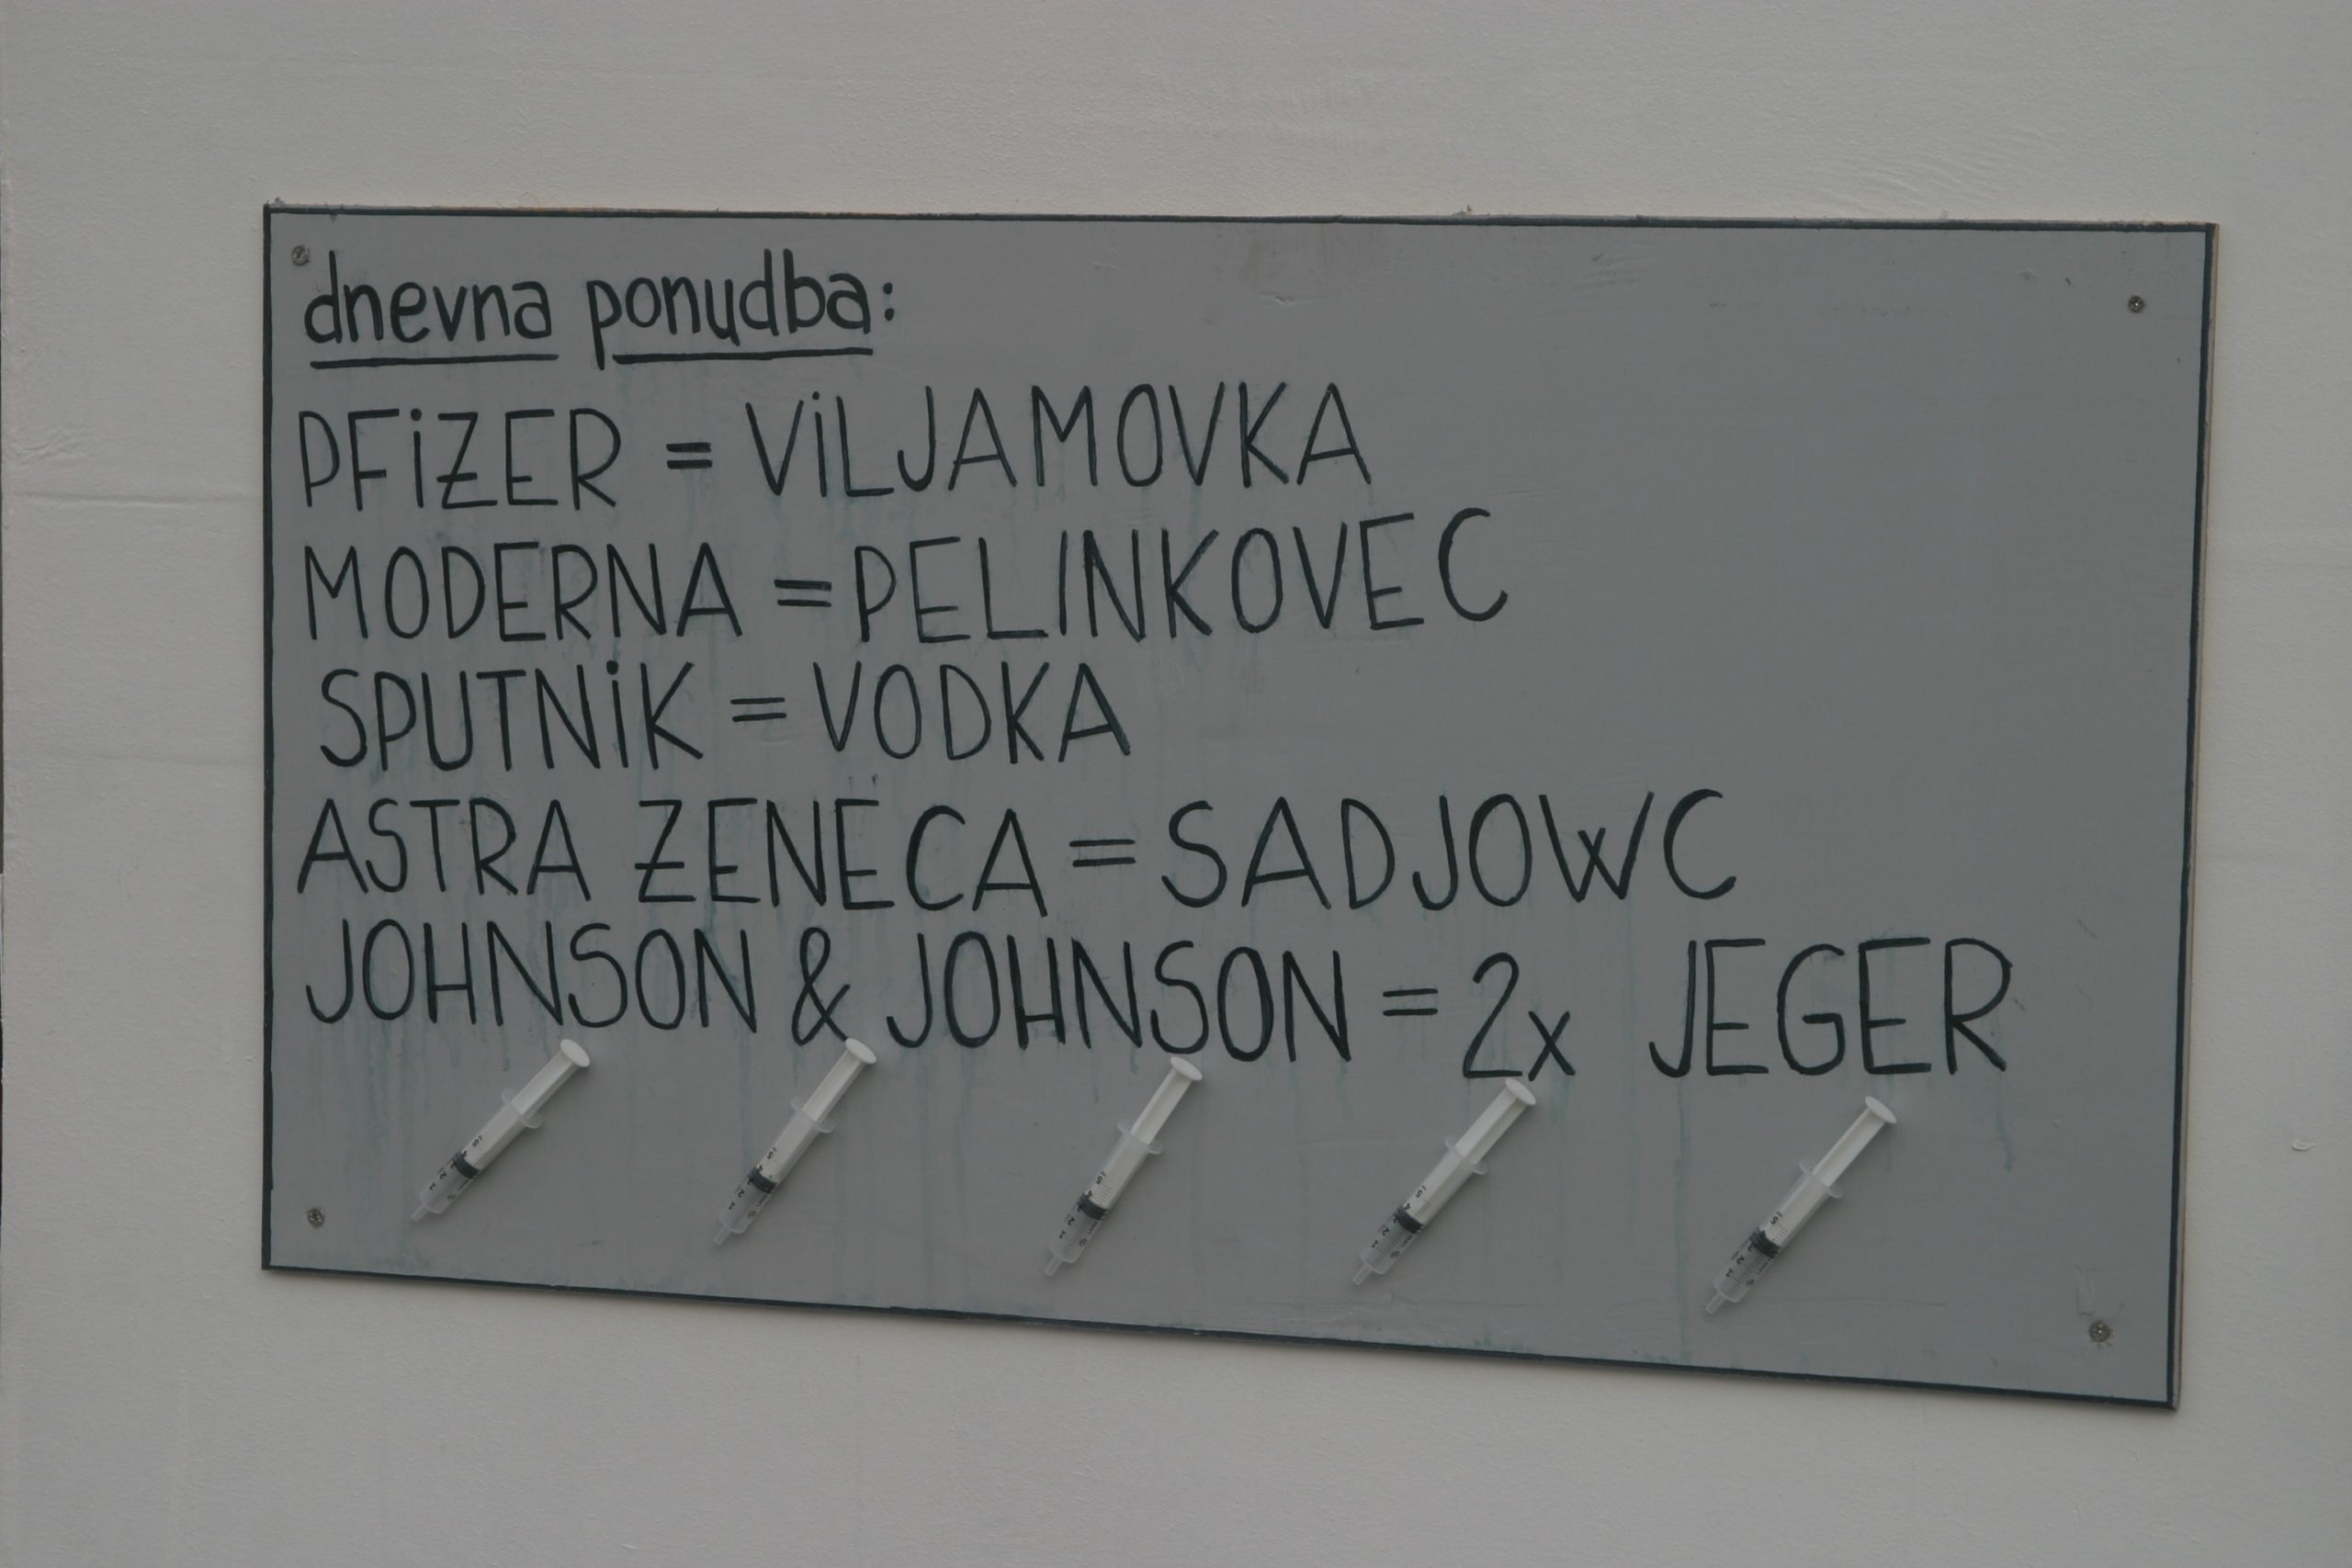 dnevna ponudba:
PFiZER = ViLJAMOVKA
MODERNA = PELINKOVEC
SPUTNiK = VODKA
ASTRA ZENECA = SADJOWC
JOHNSON & JOHNSON = 2x JEGER